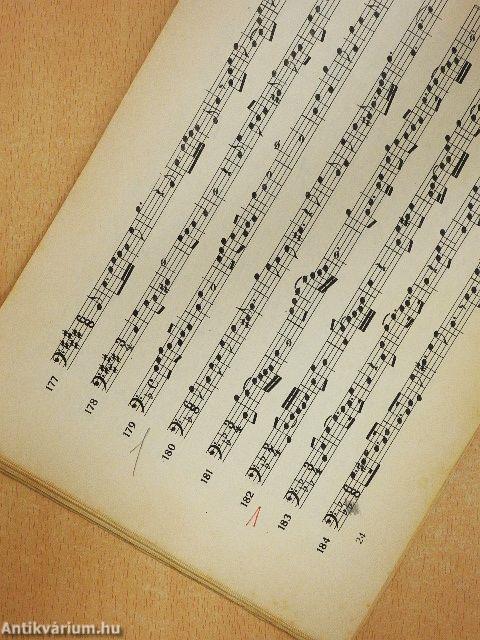 177
178
179
180
181
182
183
184
24
Antikvárium.hu